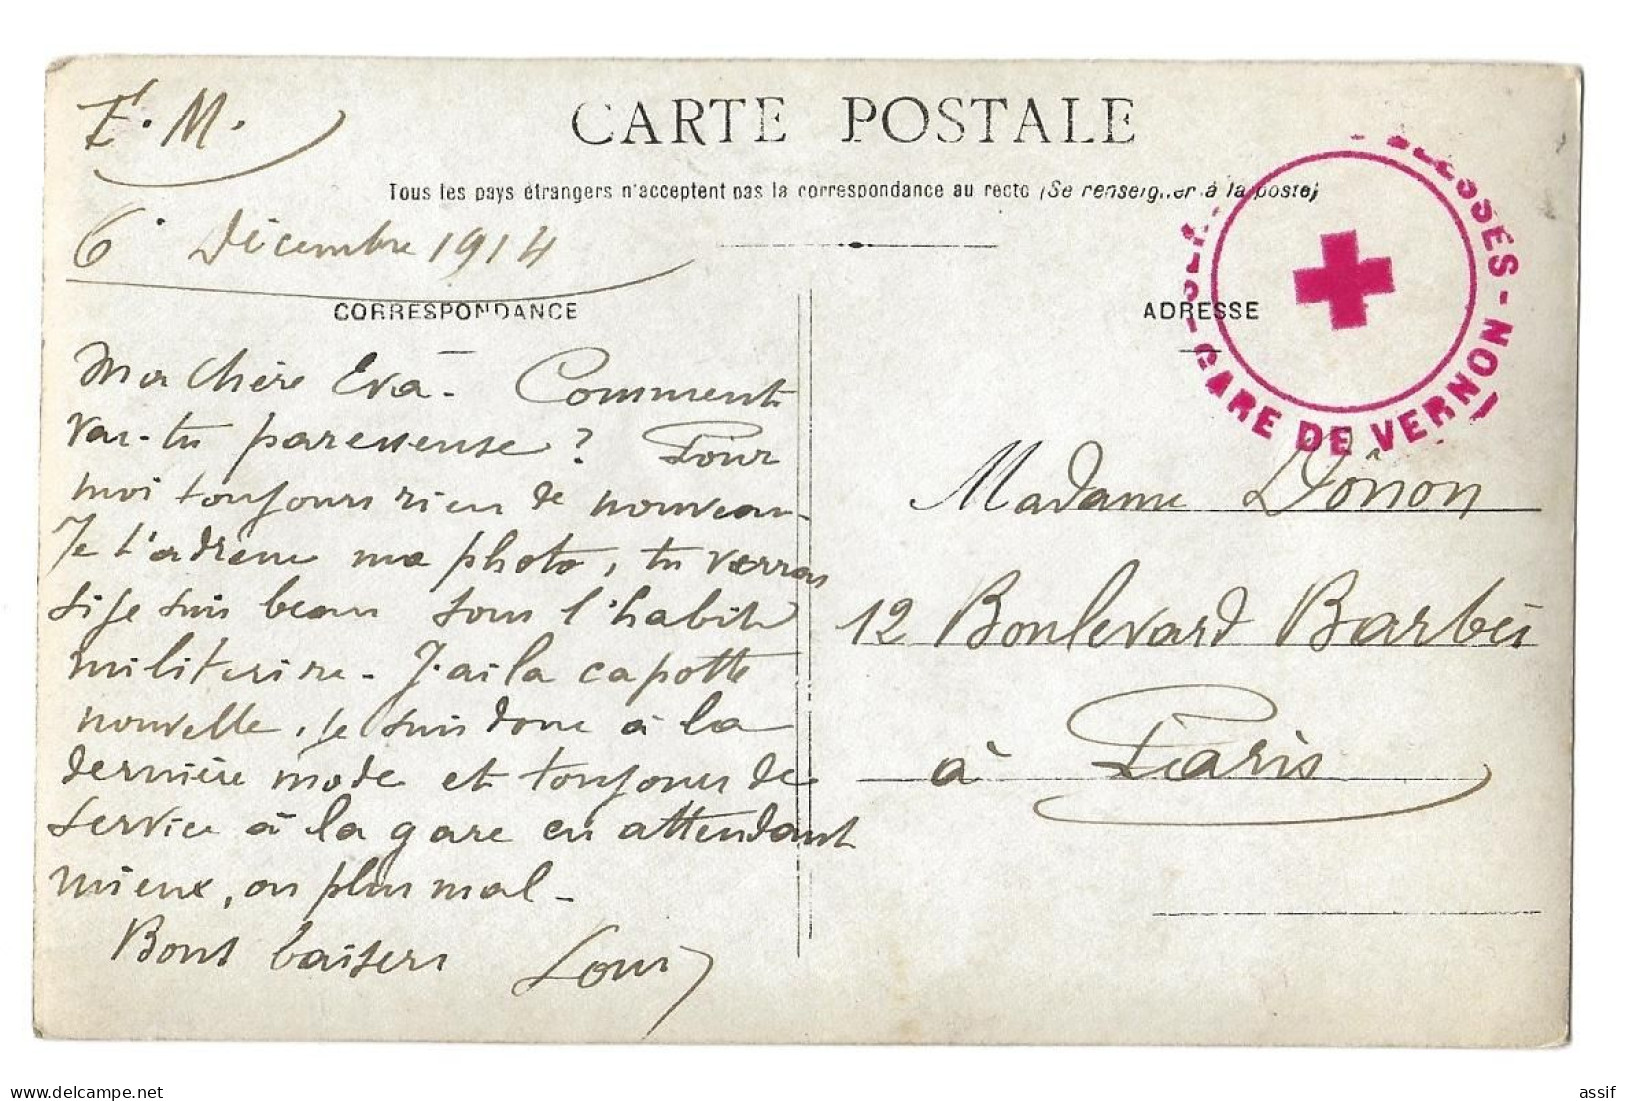 F. M.
CARTE POSTALE
Tous les pays étrangers n'acceptent pas la correspondance au recto (Se renseigner à la poste)
6 Décembre 1914
CORRESPONDANCE
ADRESSE
BLESSÉS - GARE DE VERNON -
Ma chère Eva - Comment
vas-tu paresseuse ? Pour
moi toujours rien de nouveau
Je t'adresse ma photo, tu verras
si je suis beau sous l'habit
militaire - J'ai la capotte
nouvelle, je suis donc à la
dernière mode et toujours de
service à la gare en attendant
mieux, ou plus mal -
Bons baisers Louis
Madame Dônon
12 Boulevard Barbès
à Paris
assif